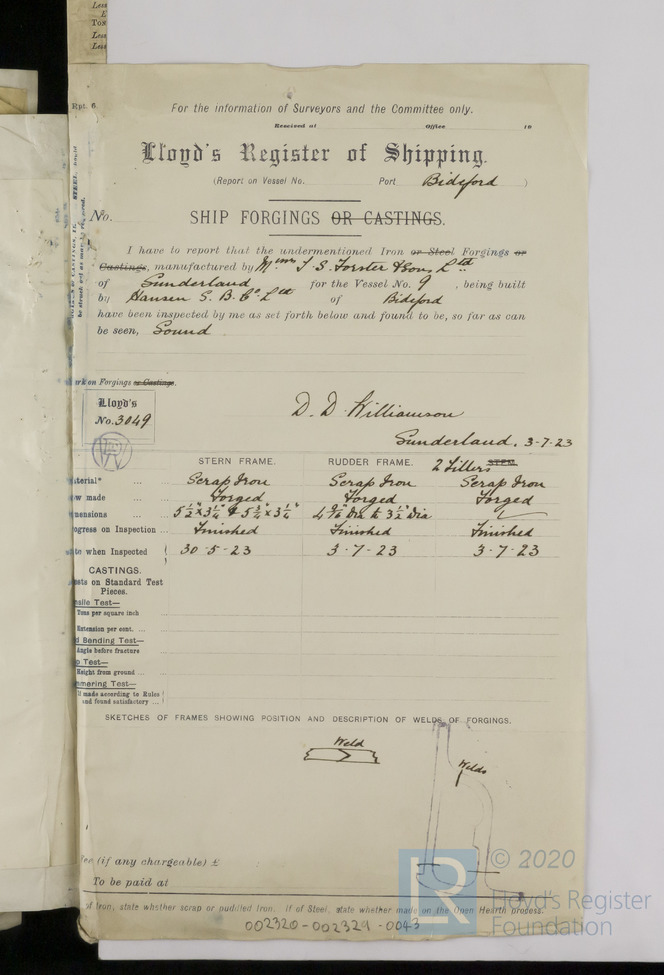 Rpt. 6.
For the information of Surveyors and the Committee only.
Received at Office 19
Lloyd's Register of Shipping.
(Report on Vessel No. Port Bideford )
No. SHIP FORGINGS OR CASTINGS.
I have to report that the undermentioned Iron or Steel Forgings or
Castings, manufactured by Messrs T. S. Forster & Sons Ltd
of Sunderland for the Vessel No. 9 , being built
by Hansen S. B. Co. Ltd of Bideford
have been inspected by me as set forth below and found to be, so far as can
be seen, Sound
on Forgings or Castings.
Lloyd's
No. 3049
D. D. Williamson
Sunderland. 3-7-23
STERN FRAME. RUDDER FRAME. 2 Tillers STEM.
aterial* Scrap Iron Scrap Iron Scrap Iron
ow made Forged Forged Forged
mensions 5 1/2" x 3 1/4" & 5 3/4" x 3 1/4" Dia to 3 1/2" Dia
ogress on Inspection Finished Finished Finished
te when Inspected 30-5-23 3-7-23 3-7-23
CASTINGS.
sts on Standard Test
Pieces.
nsile Test—
Tons per square inch
Extension per cent.
d Bending Test—
Angle before fracture
p Test—
Height from ground
mmering Test—
If made according to Rules
and found satisfactory
SKETCHES OF FRAMES SHOWING POSITION AND DESCRIPTION OF WELDS OF FORGINGS.
Weld
Welds
Fee (if any chargeable) £
To be paid at
of Iron, state whether scrap or puddled Iron. If of Steel, state whether made on the Open Hearth process.
002320-002329-0043
LR © 2020
Lloyd's Register
Foundation